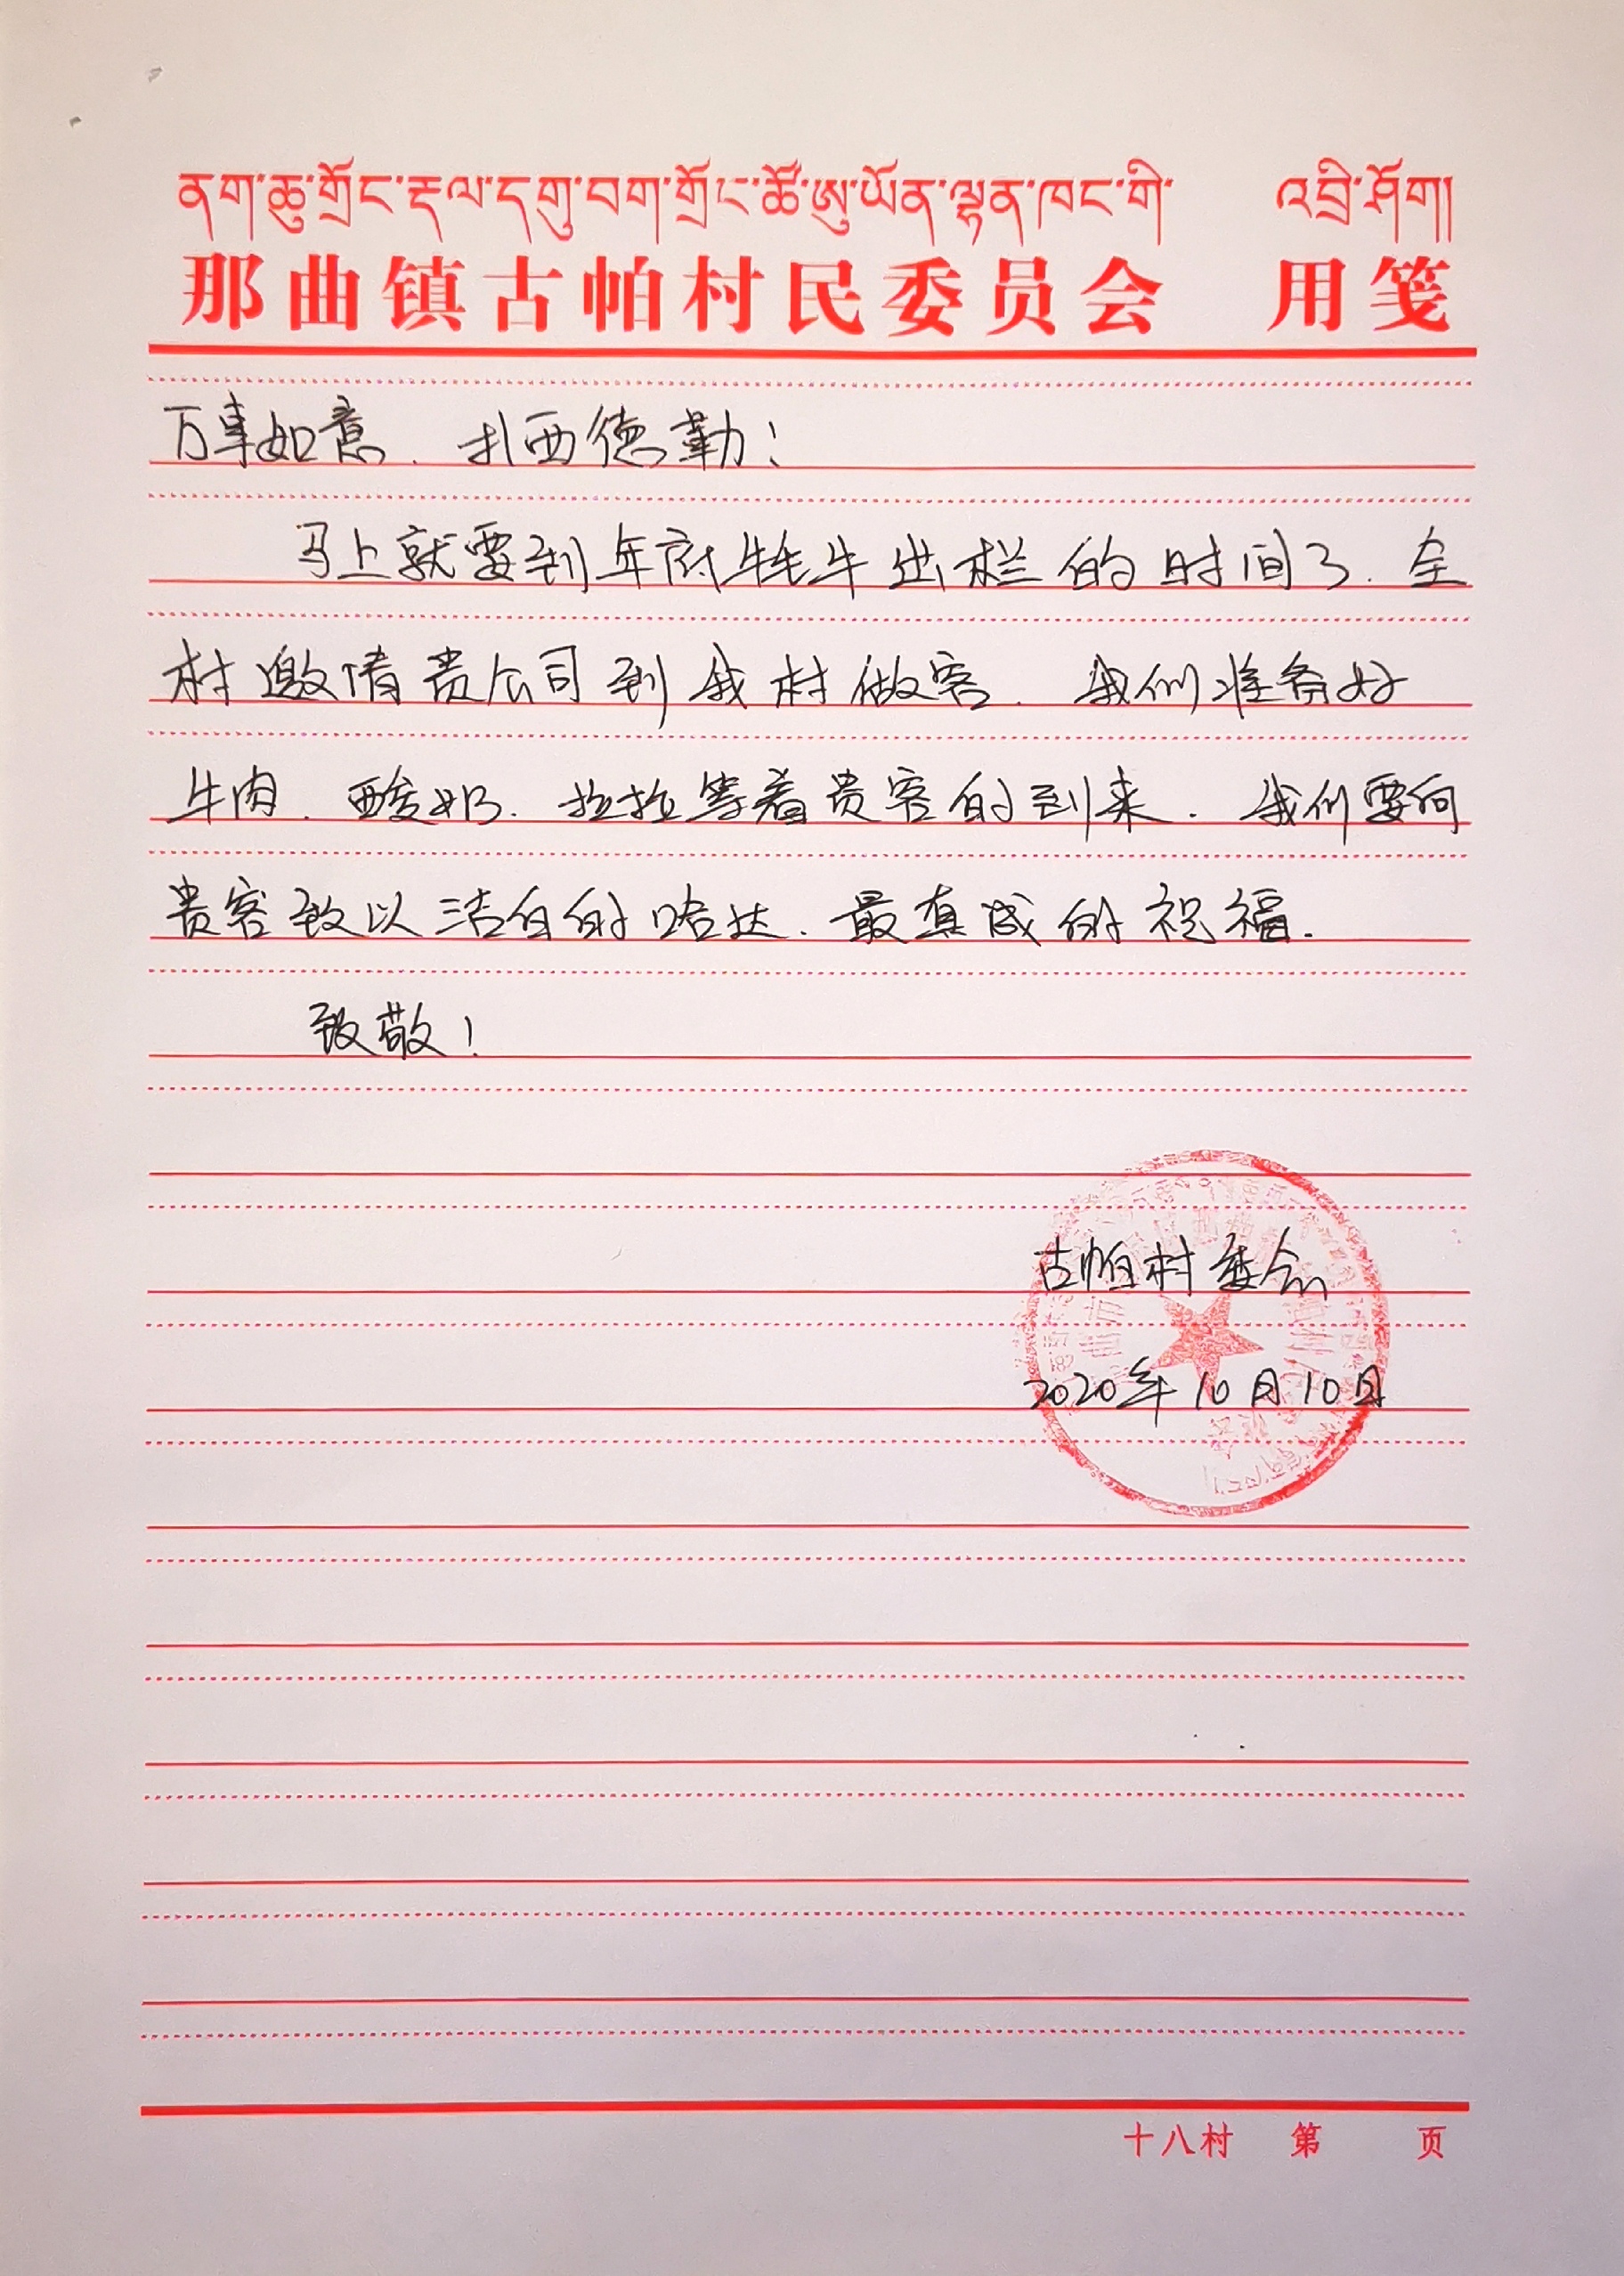 ནག་ཆུ་གྲོང་རྡལ་དགུ་བག་གྲོང་ཚོ་ཨུ་ཡོན་ལྷན་ཁང་གི་ འབྲི་ཤོག།
那曲镇古帕村民委员会 用笺
万事如意、扎西德勒！
马上就要到年底牦牛出栏的时间了、全
村邀请贵公司到我村做客、我们准备好
牛肉、酸奶、拉拉等着贵客的到来、我们要向
贵客致以洁白的哈达、最真诚的祝福.
致敬！
古帕村委会
2020年10月10日
十八村 第 页